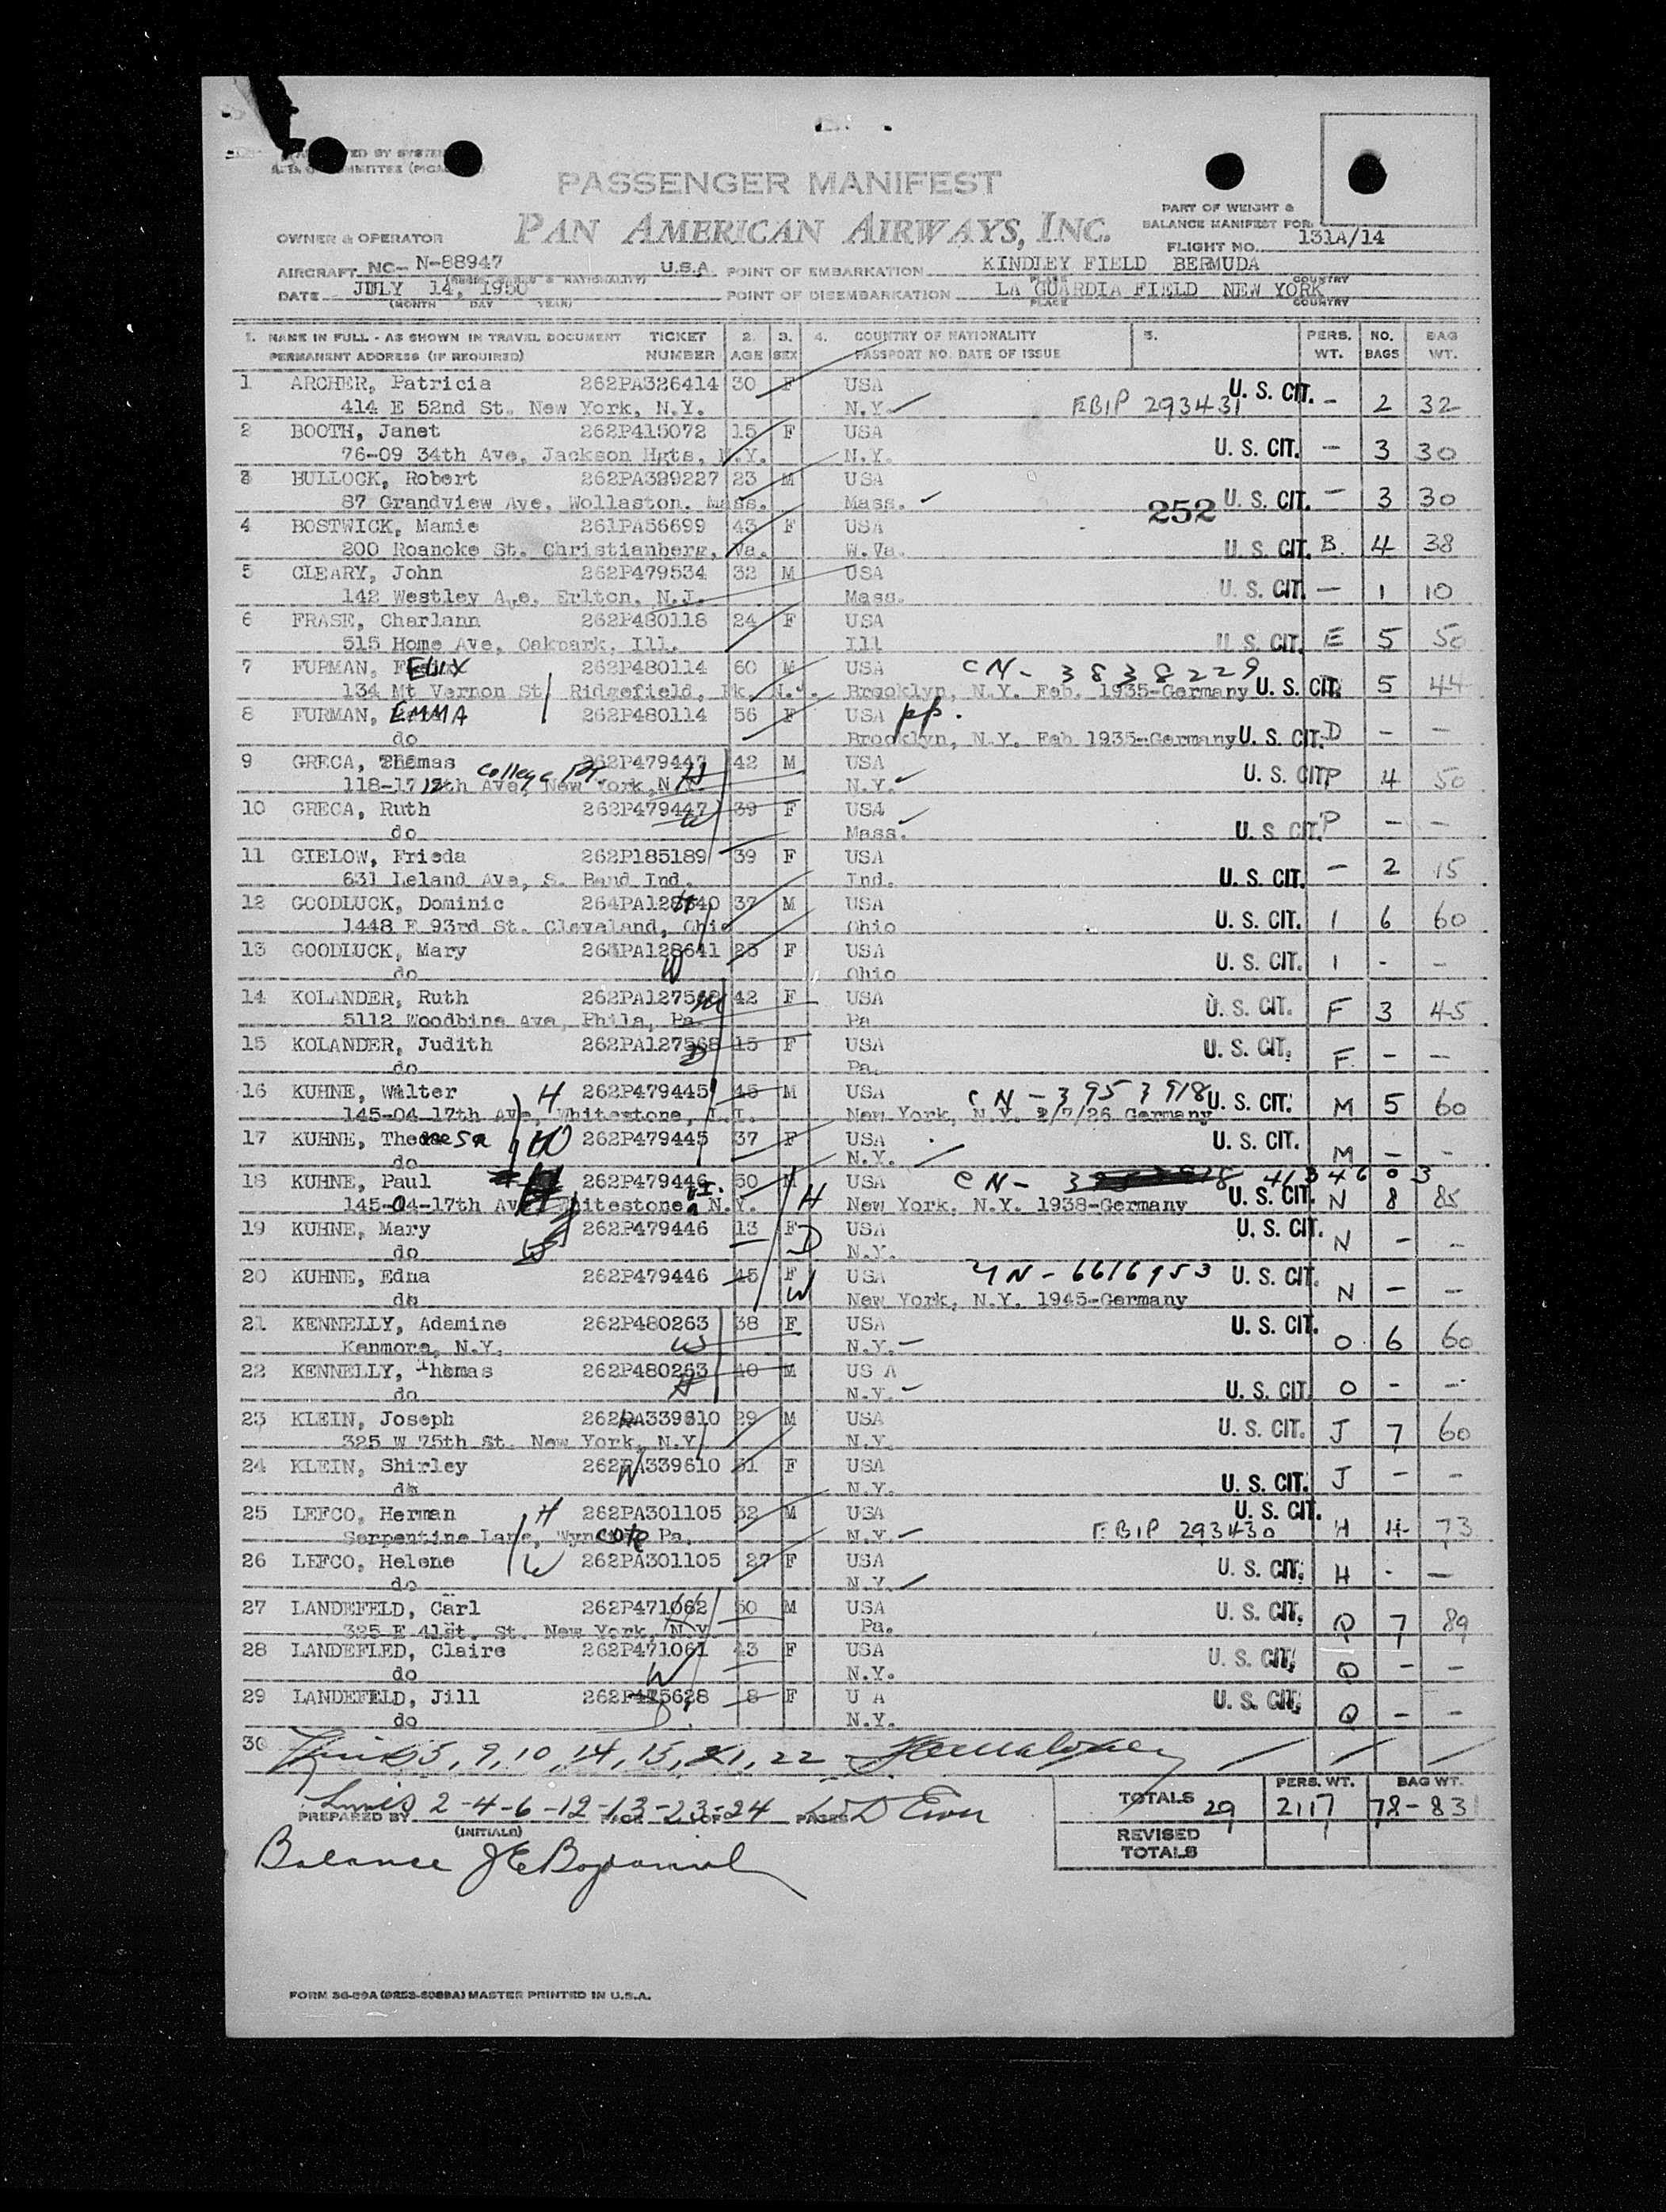 PASSENGER MANIFEST
PAN AMERICAN AIRWAYS, INC.
PART OF WEIGHT &
BALANCE MANIFEST FOR
OWNER & OPERATOR
FLIGHT NO. 131A/14
AIRCRAFT NC- N-88947 U.S.A. POINT OF EMBARKATION KINDLEY FIELD BERMUDA
DATE JULY 14, 1950 POINT OF DISEMBARKATION LA GUARDIA FIELD NEW YORK
(MONTH DAY YEAR) PLACE COUNTRY
1. NAME IN FULL - AS SHOWN IN TRAVEL DOCUMENT TICKET 2. 3. 4. COUNTRY OF NATIONALITY 5. PERS. NO. BAG
PERMANENT ADDRESS (IF REQUIRED) NUMBER AGE SEX PASSPORT NO. DATE OF ISSUE WT. BAGS WT.
1 ARCHER, Patricia 262PA326414 30 F USA U. S. CIT.
414 E 52nd St. New York, N.Y. N.Y. EBIP 293431 - 2 32
2 BOOTH, Janet 262P415072 15 F USA
76-09 34th Ave, Jackson Hgts, N.Y. N.Y. U. S. CIT. - 3 30
3 BULLOCK, Robert 262PA329227 23 M USA
87 Grandview Ave, Wollaston, Mass. Mass. 252 U. S. CIT. - 3 30
4 BOSTWICK, Mamie 261PA56699 43 F USA
200 Roanoke St. Christianberg, Va. W.Va. U. S. CIT. B. 4 38
5 CLEARY, John 262P479534 32 M USA
142 Westley Ave, Erlton, N.J. Mass. U. S. CIT - 1 10
6 FRASE, Charlann 262P480118 24 F USA
515 Home Ave, Oakpark, Ill. Ill U. S. CIT. E 5 50
7 FURMAN, FELIX 262P480114 60 M USA CN- 3838229
134 Mt Vernon St Ridgefield, Pk. N.J. Brooklyn, N.Y. Feb. 1935-Germany U. S. CIT. 5 44
8 FURMAN, EMMA 262P480114 56 F USA pp.
do Brooklyn, N.Y. Feb 1935-Germany U. S. CIT. D - -
9 GRECA, Thomas 262P479447 42 M USA
118-17 12th Ave, College Pt. New York, N.Y. H N.Y. U. S. CIT P 4 50
10 GRECA, Ruth 262P479447 39 F USA
do W Mass. U. S. CIT. P - -
11 GIELOW, Frieda 262P185189 39 F USA
631 Leland Ave, S. Bend Ind. Ind. U. S. CIT. - 2 15
12 GOODLUCK, Dominic 264PA128640 37 M USA
1448 E 93rd St. Cleveland, Ohio Ohio U. S. CIT. 1 6 60
13 GOODLUCK, Mary 264PA128641 23 F USA
do W Ohio U. S. CIT. 1 - -
14 KOLANDER, Ruth 262PA127568 42 F USA
5112 Woodbine Ave, Phila, Pa. M Pa U. S. CIT. F 3 45
15 KOLANDER, Judith 262PA127568 15 F USA
do D Pa. U. S. CIT. F - -
16 KUHNE, Walter H 262P479445 48 M USA CN - 3953918
145-04 17th Ave, Whitestone, L.I. New York, N.Y. 2/7/26 Germany U. S. CIT. M 5 60
17 KUHNE, Theresa W 262P479445 37 F USA
do N.Y. U. S. CIT. M - -
18 KUHNE, Paul 262P479446 50 M USA CN- 4134603
145-04-17th Ave Whitestone L.I. N.Y. H New York, N.Y. 1938-Germany U. S. CIT. N 8 85
19 KUHNE, Mary 262P479446 13 F USA
do D N.Y. U. S. CIT. N - -
20 KUHNE, Edna 262P479446 45 F USA CN-6616953
do W New York, N.Y. 1945-Germany U. S. CIT. N - -
21 KENNELLY, Adamine 262P480263 38 F USA
Kenmore, N.Y. W N.Y. U. S. CIT. O 6 60
22 KENNELLY, Thomas 262P480263 40 M US A
do H N.Y. U. S. CIT. O - -
23 KLEIN, Joseph 262PA339610 29 M USA
325 W 75th St. New York, N.Y. N.Y. U. S. CIT. J 7 60
24 KLEIN, Shirley 262PA339610 31 F USA
do W N.Y. U. S. CIT. J - -
25 LEFCO, Herman H 262PA301105 32 M USA
Serpentine Lane, Wyncote Pa. N.Y. EBIP 293430 U. S. CIT. H 4 73
26 LEFCO, Helene W 262PA301105 27 F USA
do N.Y. U. S. CIT. H - -
27 LANDEFELD, Carl 262P471062 50 M USA
325 E 41st. St. New York, N.Y. H Pa. U. S. CIT. Q 7 89
28 LANDEFLED, Claire 262P471061 43 F USA
do W N.Y. U. S. CIT. Q - -
29 LANDEFELD, Jill 8 F U A
do D. N.Y. U. S. CIT. Q - -
30 5, 9, 10, 14, 15, 21, 22
2-4-6-12-13-23-24
PREPARED BY PAGE OF PAGES
(INITIALS)
Balance
TOTALS 29 PERS. WT. 2117 BAG WT. 78-831
REVISED
TOTALS
FORM 36-89A MASTER PRINTED IN U.S.A.